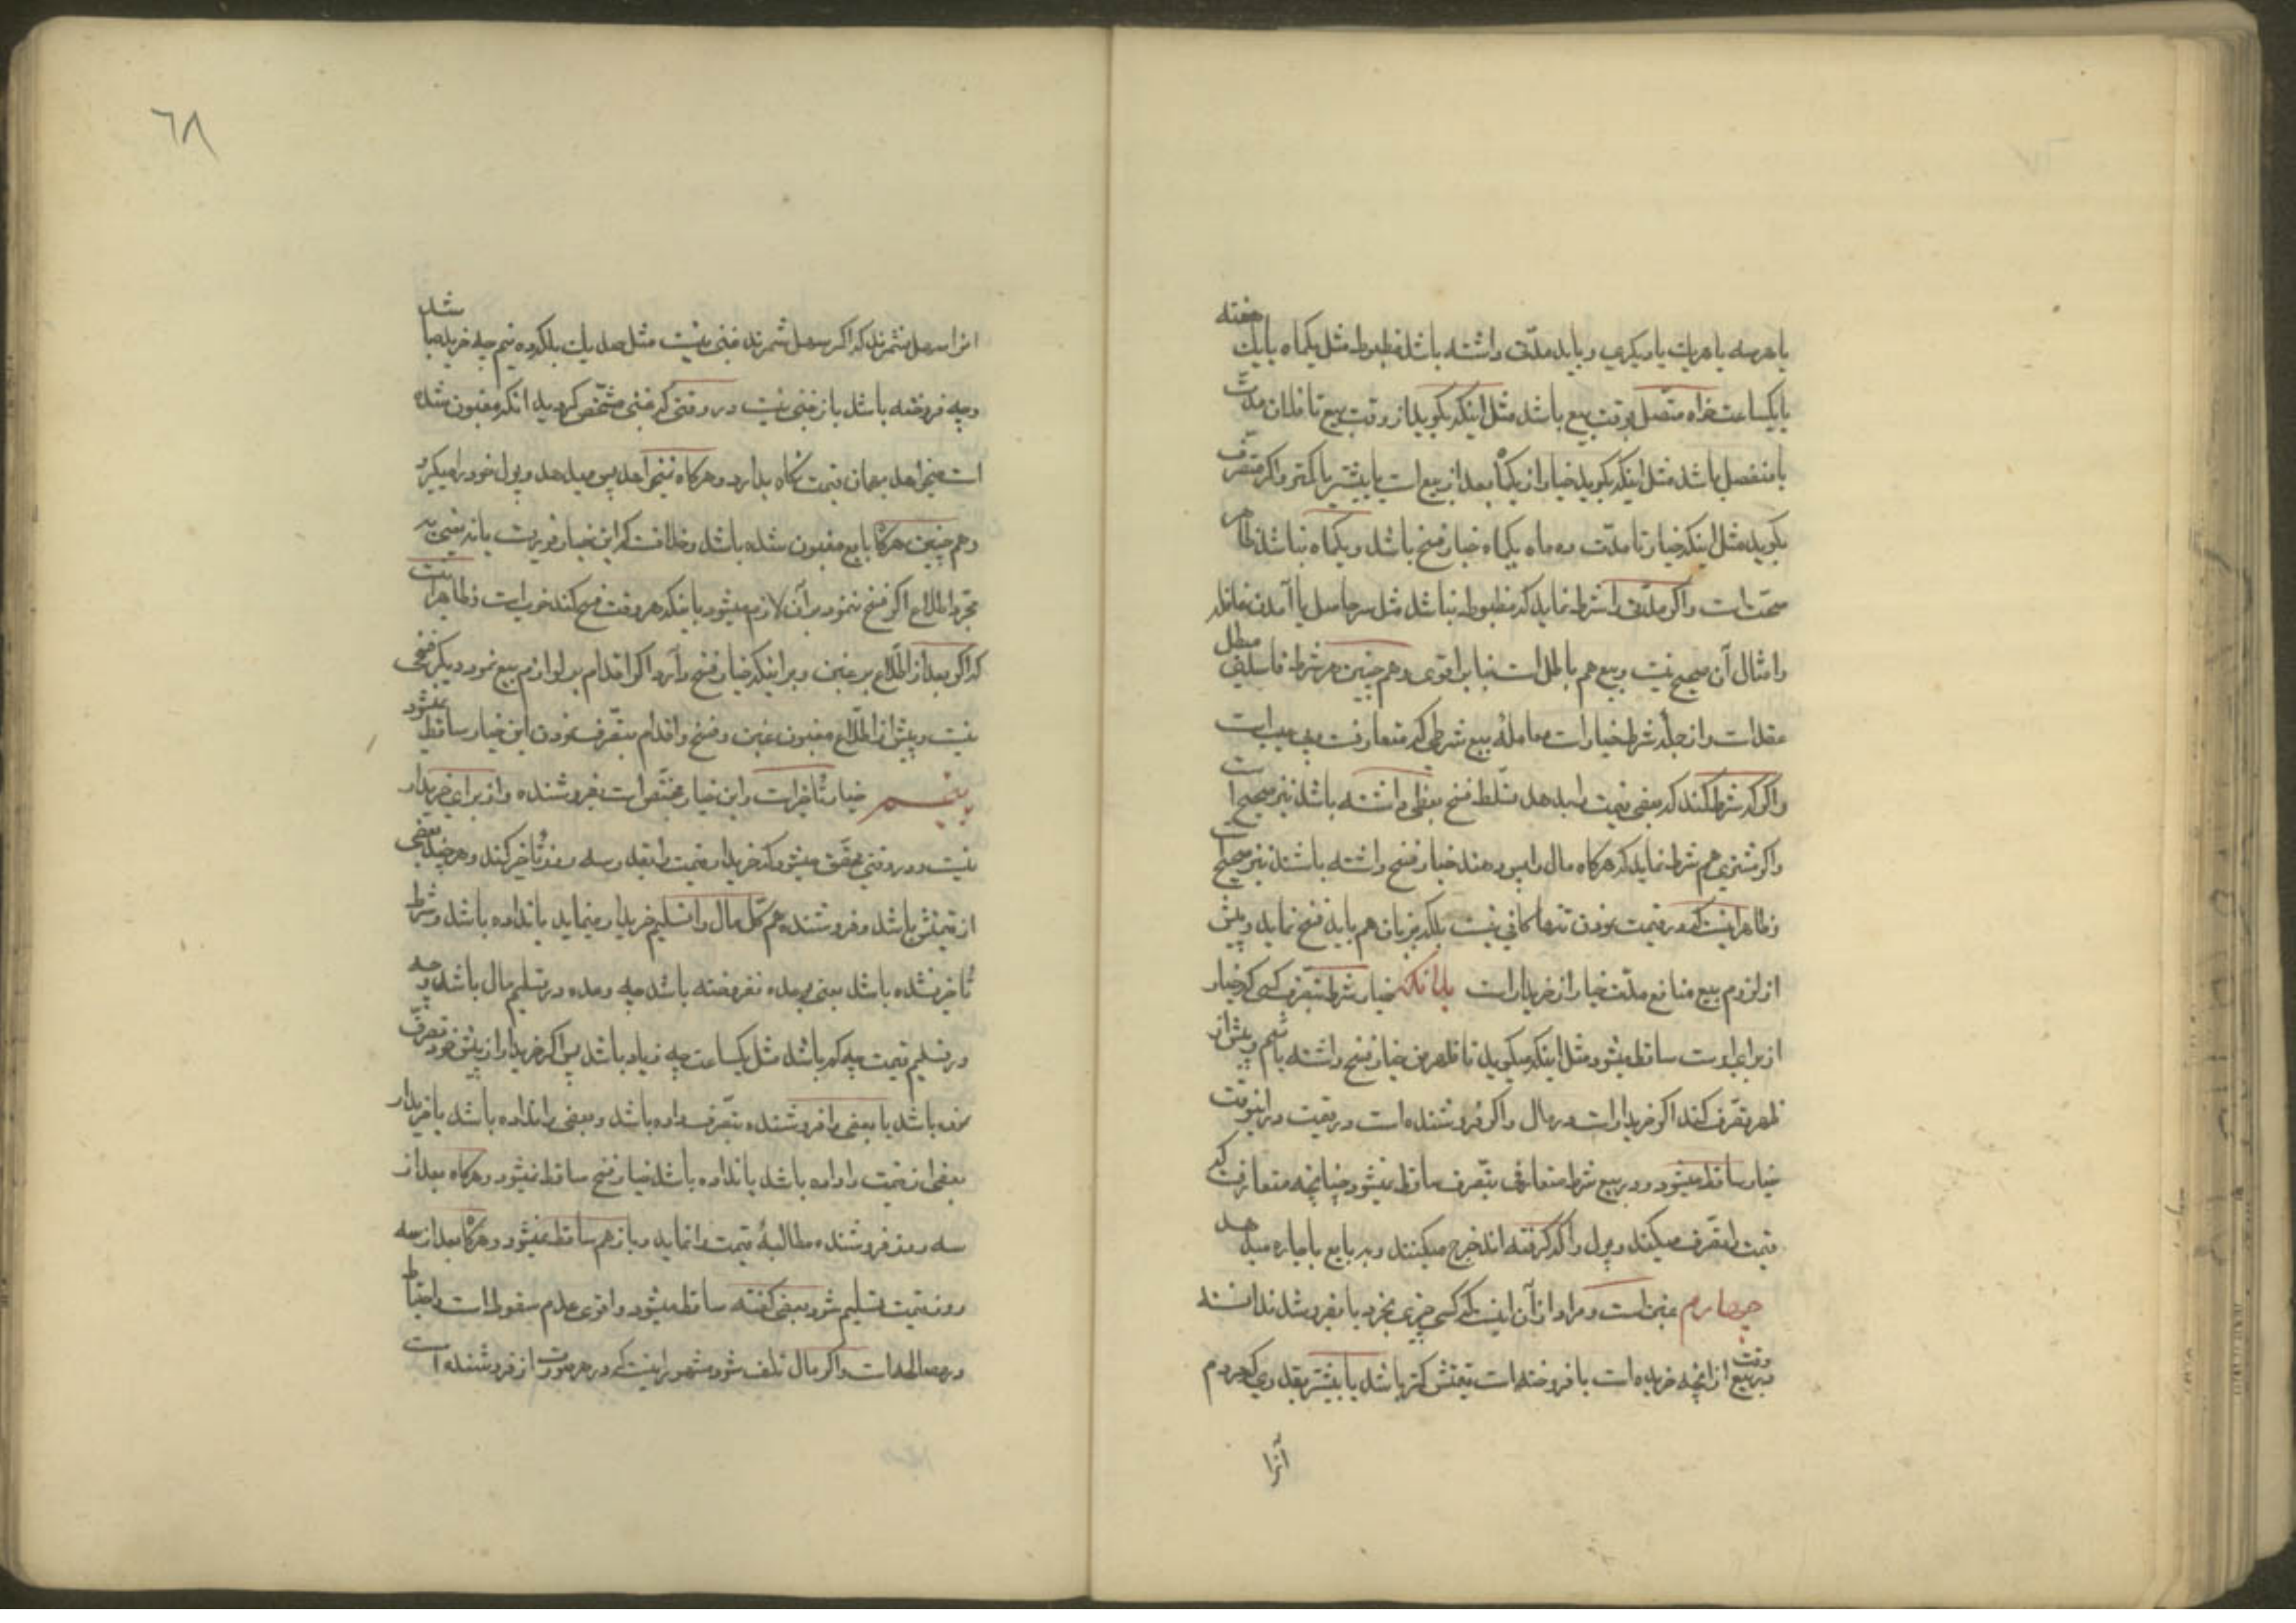 یا هر سه یا هر یک یا دیگری و باید مدّت داشته باشد مظبوط مثل یکماه یا یک هفته
یا یکساعت خواه متّصل بوقت بیع باشد مثل اینکه بگوید از وقت بیع تا فلان مدّت
یا منفصل باشد مثل اینکه بگوید خیار از یکماه بعد از بیع است یا بیشتر یا کمتر و اگر متفرّق
بگوید مثل اینکه خیار تا مدّت ده ماه یکماه خیار فسخ باشد و یکماه نباشد ظاهر
صحّت است و اگر مدّتی را شرط نماید که مظبوط نباشد مثل سر حاصل یا آمدن قافله
و امثال آن صحیح نیست و بیع هم باطل است بنا بر اقوی و هم چنین هر شرط فاسدی مبطل
عقد است و از جمله شرط خیار است معامله بیع شرطی که متعارفست و بی عیب است
و اگر که شرط کند که بعض قیمت را بدهد تسلّط فسخ بعضی داشته باشد نیز صحیح است
و اگر مشتری هم شرط نماید که هرگاه مال را پس دهند خیار فسخ داشته باشد نیز صحیح است
و ظاهر اینست که رد قیمت نمودن تنها کافی نیست بلکه بزبان هم باید فسخ نماید و پیش
از لزوم بیع منافع مدّت خیار از خریدار است بدانکه خیار شرط بتصرّف کسی که خیار
از برای اوست ساقط میشود مثل اینکه میگوید تا ظهر من خیار فسخ داشته باشم و پیش از
ظهر تصرّف کند اگر خریدار است در مال و اگر فروشنده است در قیمت در اینوقت
خیار ساقط میشود و در بیع شرط متعارفی بتصرّف ساقط نمیشود چنانچه متعارفست که
قیمت را تصرّف میکنند و پول را که گرفته‌اند خرج میکنند و به بایع باجاره میدهد
چهارم غبن است و مراد از آن اینست که کسی چیزی بخرد یا بفروشد ندانسته
در وقت بیع از آنچه خریده است یا فروخته است قیمتش کمتر باشد یا بیشتر بقدری که مردم
آنرا
آنرا سهل نشمرند که اگر سهل شمرند غبنی نیست مثل صد یک بلکه ده نیم چه خریده باشد
و چه فروخته باشد باز غبنی نیست در وقتی که غبنی مشخّص گردید آنکه مغبون شده
است میخواهد بهمان قیمت نگاه بدارد و هرگاه نمیخواهد پس میدهد و پول خود را میگیرد
و هم چنین هرگاه بایع مغبون شده باشد و خلافست که این خیار فوریست یا نه یعنی به
مجرّد اطّلاع اگر فسخ ننمود بر آن لازم میشود یا اینکه هر وقت فسخ کند خوب است و ظاهر اینست
که اگر بعد از اطّلاع بر غبن و بر اینکه خیار فسخ دارد اگر اقدام بر لوازم بیع نمود دیگر فسخی
نیست و پیش از اطّلاع مغبون بغبن و فسخ و اقدام بتصرّف نمودن این خیار ساقط نمیشود
پنجم خیار تأخیر است و این خیار مختصّ است بفروشنده و از برای خریدار
نیست و در وقتی محقّق میشود که خریدار قیمت را بقدر سه روز تأخیر کند و هر چند بعضی
از قیمتش باشد و فروشنده هم کلّ مال را تسلیم خریدار ننماید یا نداده باشد و شرط
تأخیر نشده باشد یعنی بوعده نفروخته باشد چه وعده در تسلیم مال باشد و چه
در تسلیم قیمت چه کم باشد مثل یکساعت چه زیاد باشد پس اگر خریدار از پیش خود تصرّف
نموده باشد یا بعضی را فروشنده بتصرّف داده باشد و بعضی را نداده باشد یا خریدار
بعضی از قیمت را داده باشد یا نداده باشد خیار فسخ ساقط نمیشود و هرگاه بعد از
سه روز فروشنده مطالبهٔ قیمت را نماید و باز هم ساقط نمیشود و هرگاه بعد از سه
روز قیمت تسلیم شود بعضی گفته ساقط میشود و اقوی عدم سقوط است و احتیاط
در مصالحه است و اگر مال تلف شود مشهور اینست که در هر صورت از فروشنده است
٦٨